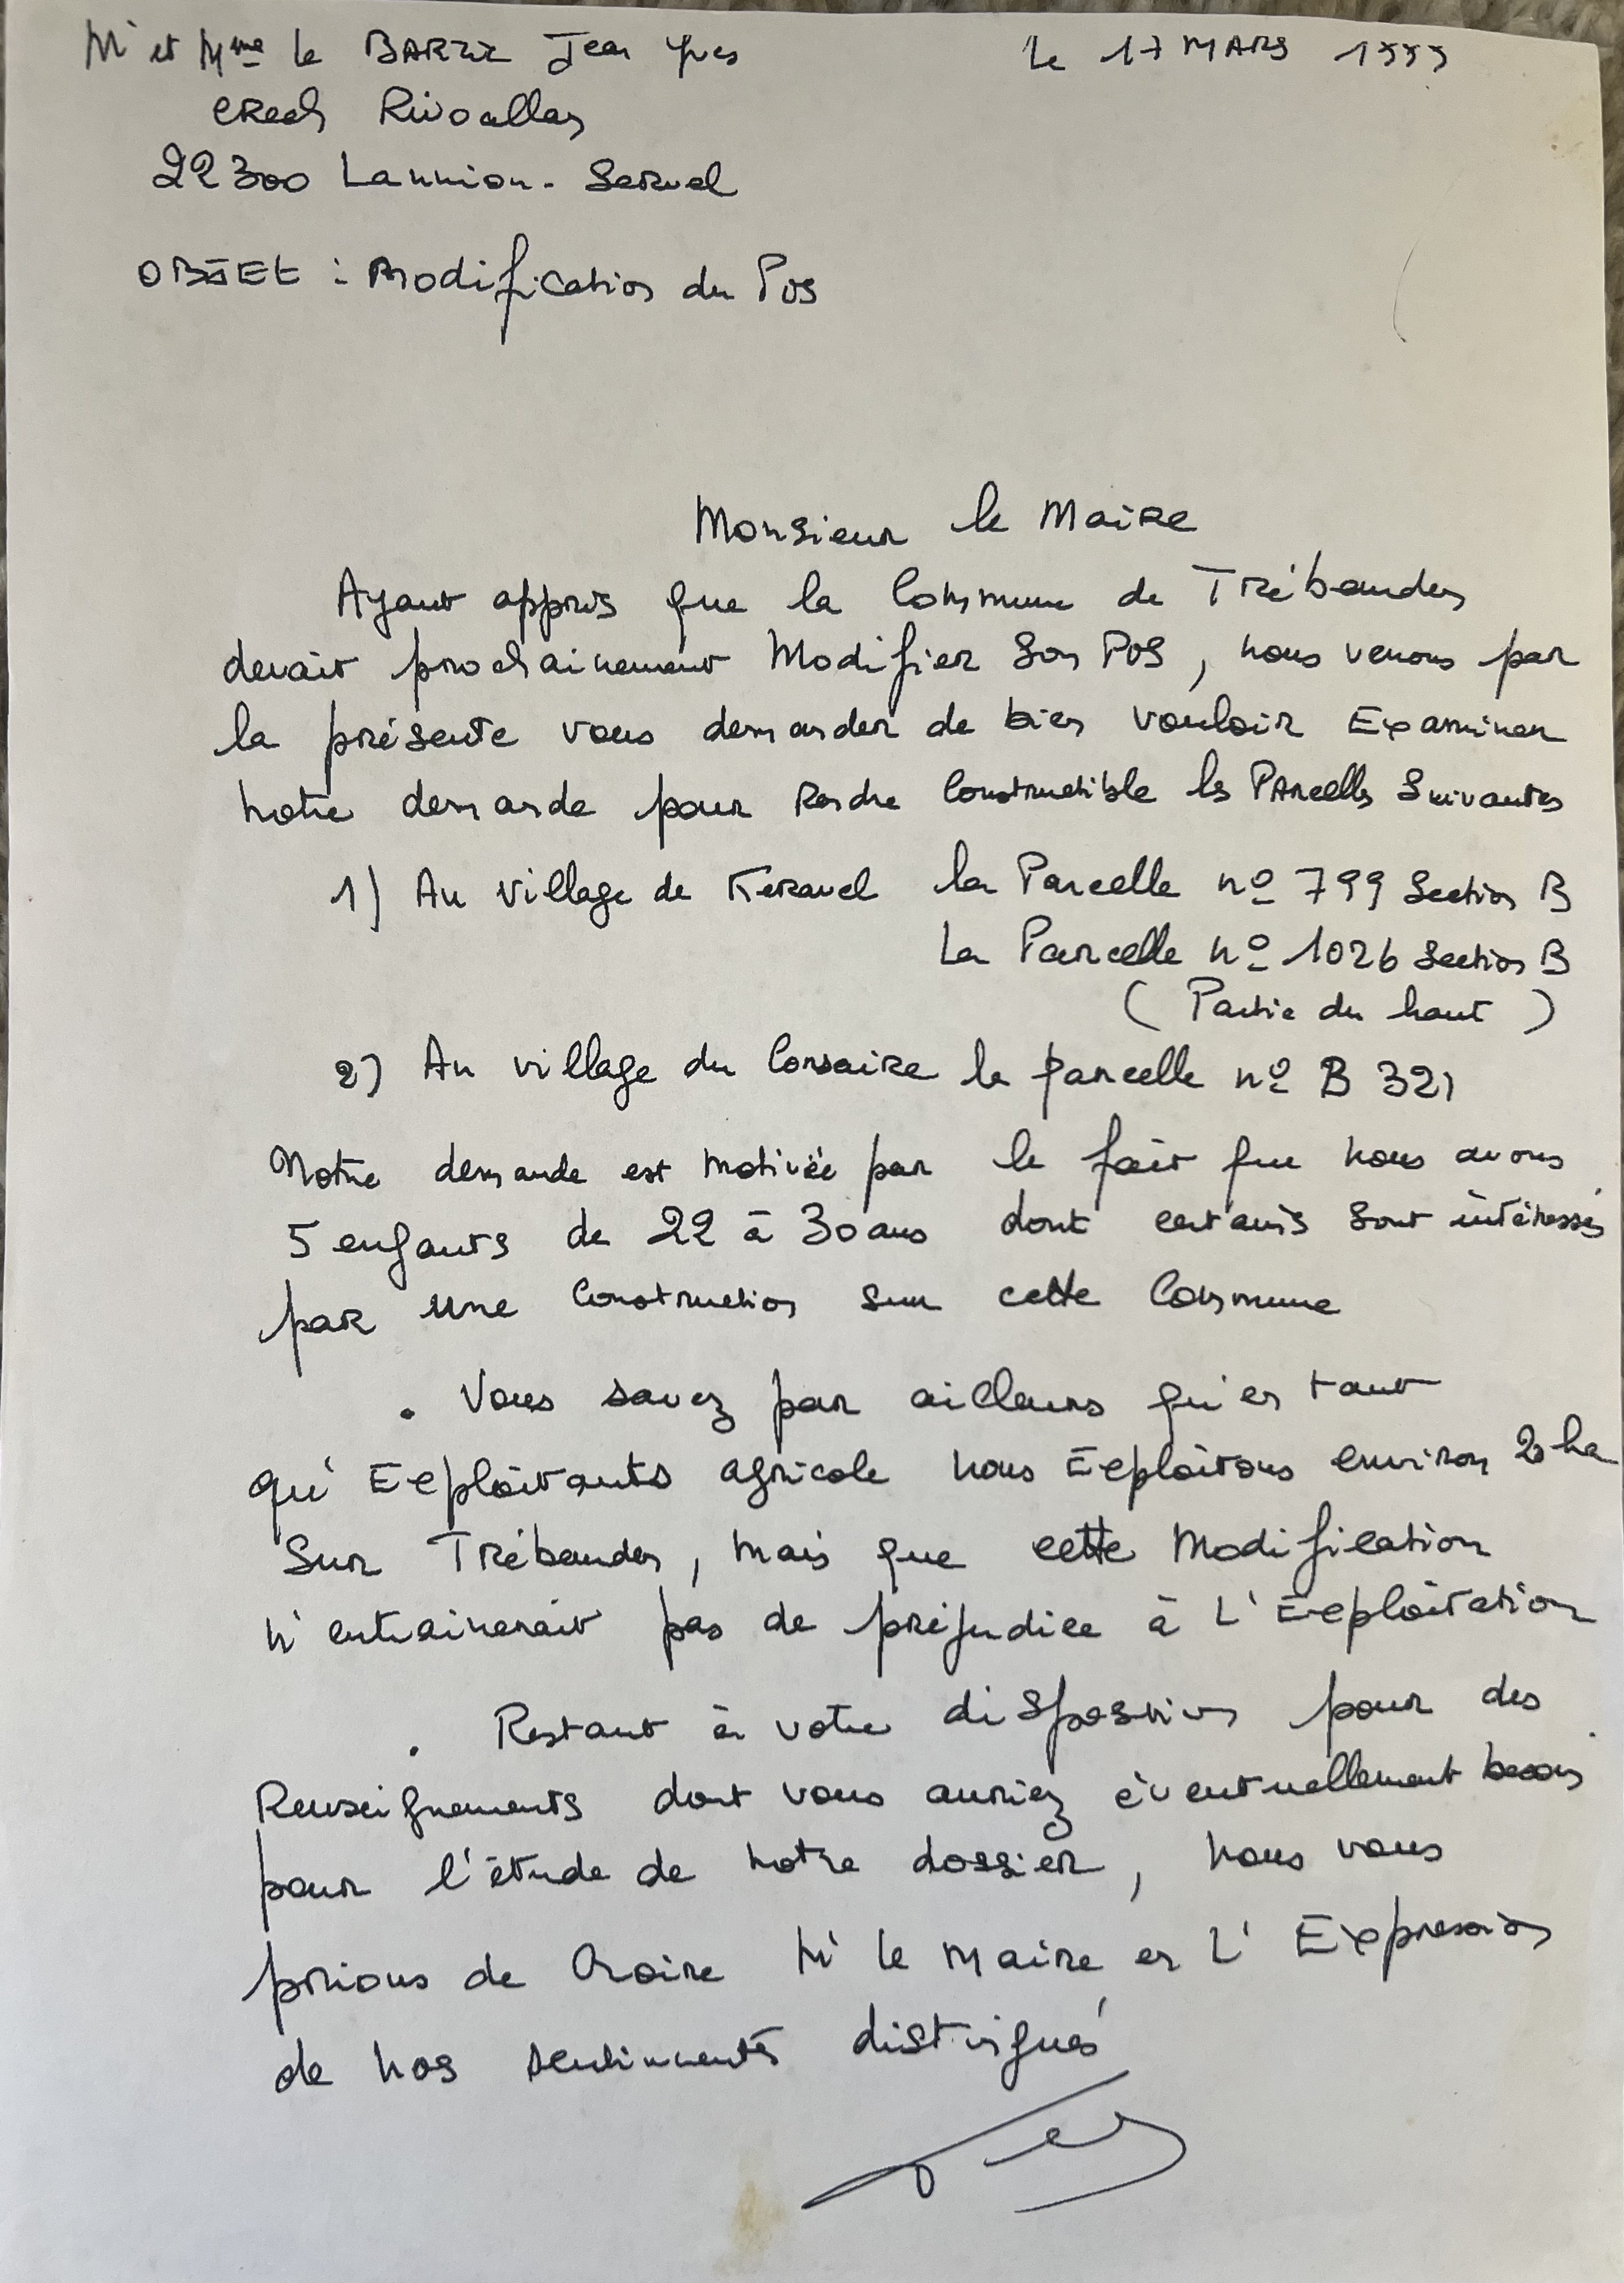 Mr et Mme le BARZIC Jean Yves
Le 17 MARS 1999
CRech Rivoallan
22300 Lannion - Servel
OBJET : Modification du POS
Monsieur le Maire
Ayant appris que la Commune de Trébeurden
devait prochainement Modifier Son POS, nous venons par
la présente vous demander de bien vouloir Examiner
notre demande pour Rendre Constructible les Parcelles Suivantes
1) Au village de Keravel la Parcelle n° 799 Section B
La Parcelle n° 1026 Section B
( Partie du haut )
2) Au village du Corsaire la parcelle n° B 321
Notre demande est motivée par le fait que nous avons
5 enfants de 22 à 30 ans dont certains sont intéressés
par une Construction sur cette Commune
. Vous savez par ailleurs qu'en tant
qu'Exploitants agricole nous Exploitons environ ha
Sur Trébeurden, mais que cette Modification
n'entrainerait pas de préjudice à L'Exploitation
. Restant à votre disposition pour des
Renseignements dont vous auriez éventuellement besoin
pour l'étude de notre dossier, nous vous
prions de Croire Mr le Maire en L'Expression
de nos sentiments distingués